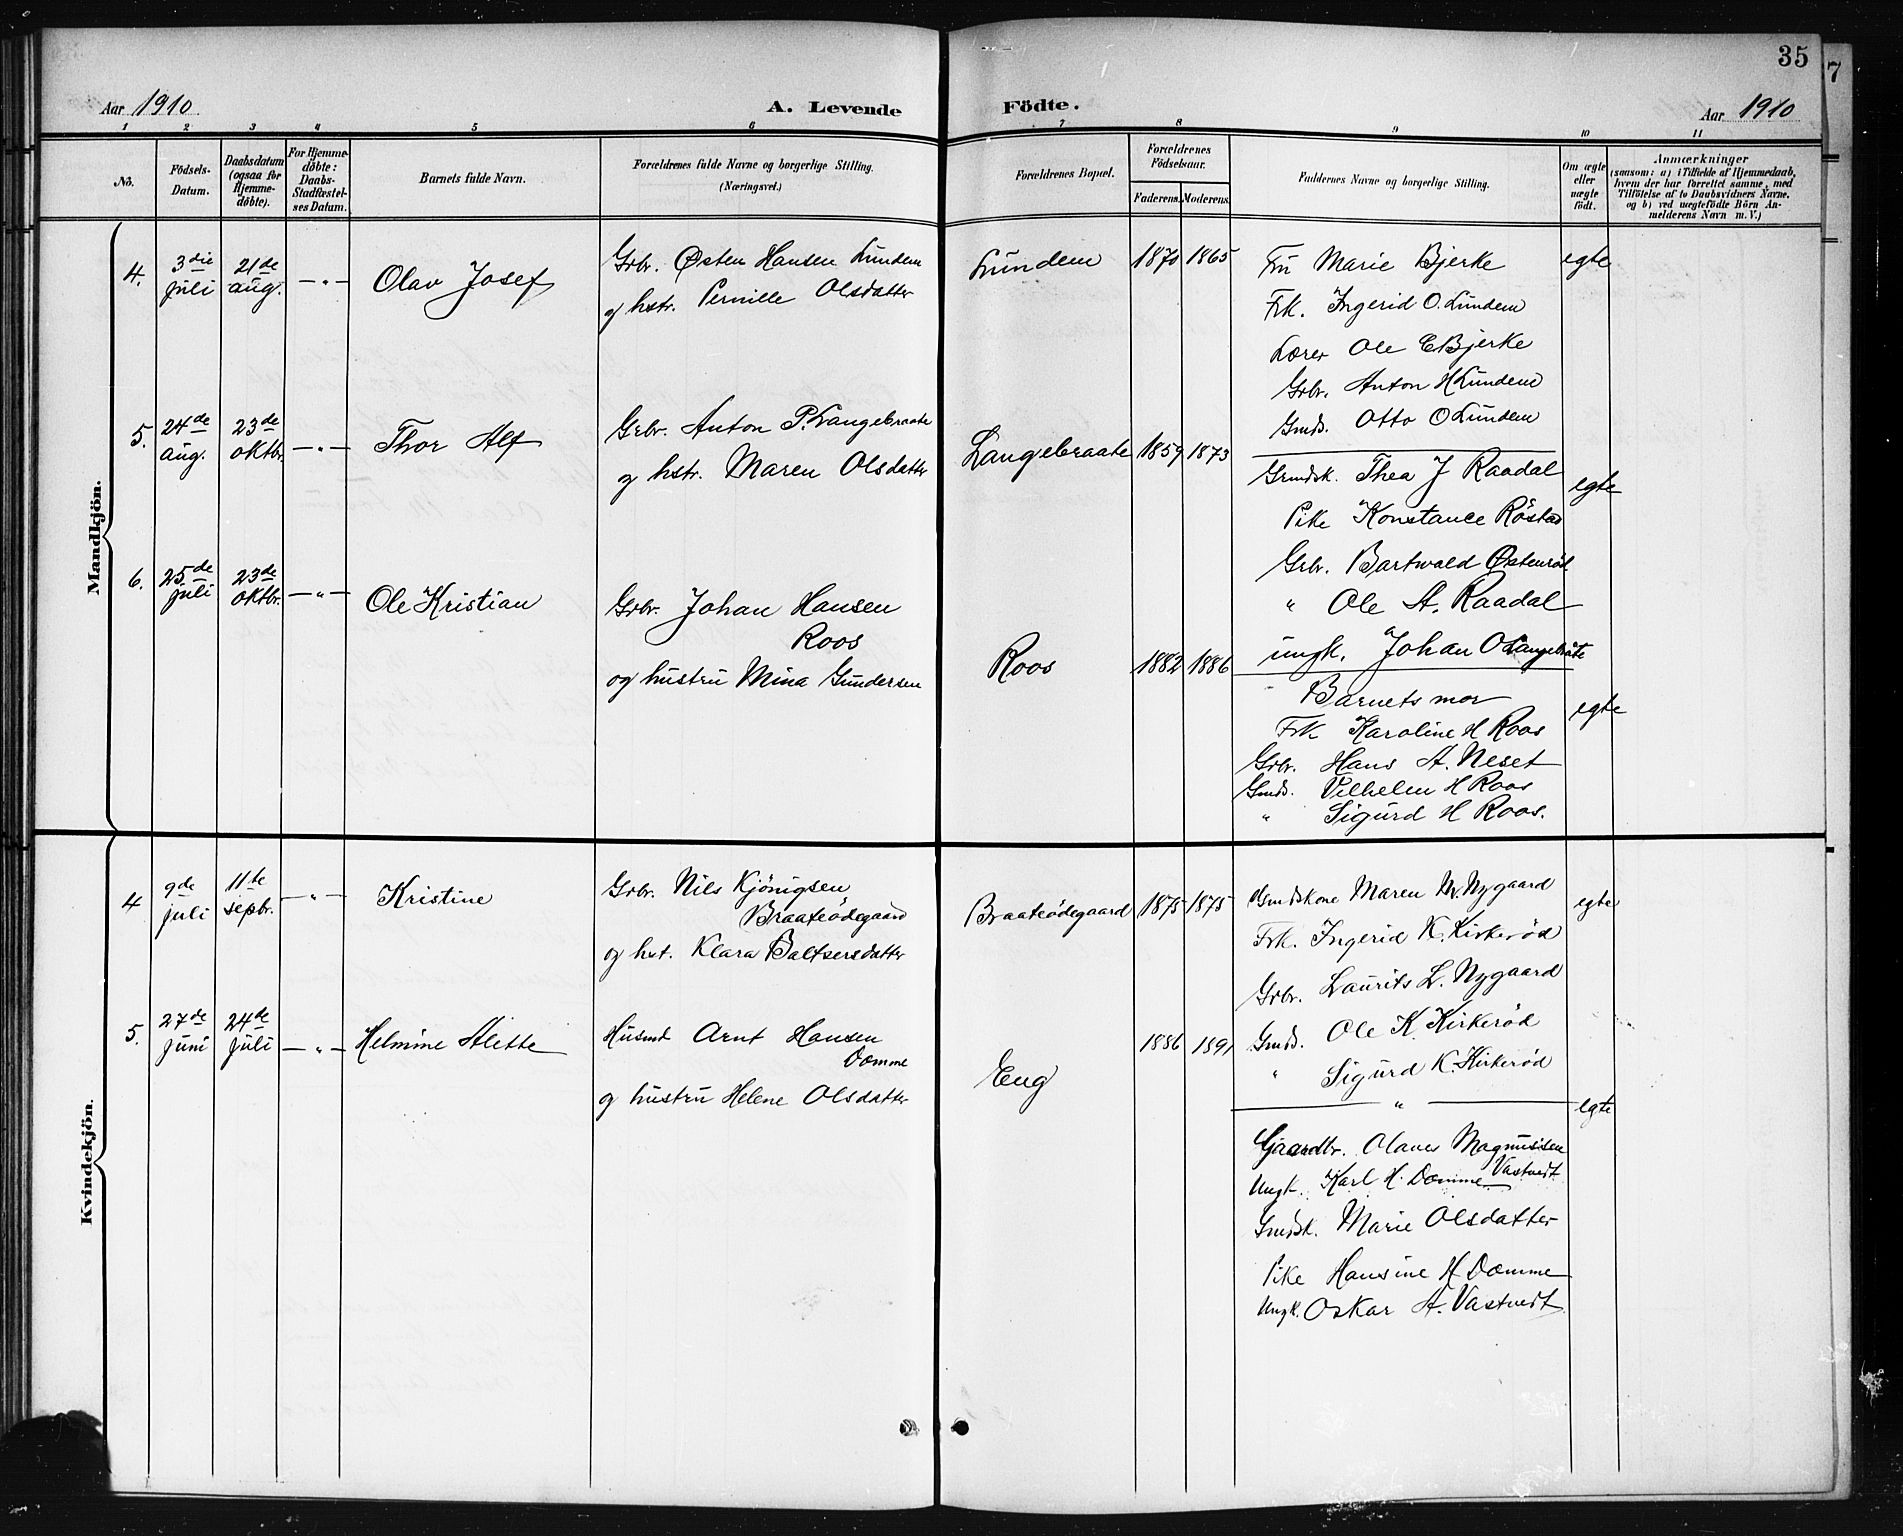 35
7
Aar 1910
A. Levende
Födte.
Aar 1910
1 2 3 4 5 6 7 8 9 10 11
No.
Födsels-
Datum.
Daabsdatum
(ogsaa for
Hjemme-
döbte).
For Hjemme-
döbte:
Daabs-
Stadfæstel-
ses Datum.
Barnets fulde Navn.
Forældrenes fulde Navne og borgerlige Stilling.
(Næringsvei.)
Forældrenes Bopæl.
Forældrenes
Födselsaar.
Faderens. Moderens.
Faddernes Navne og borgerlige Stilling.
Om ægte
eller
uægte
födt.
Anmærkninger
(saasom: a) i Tilfælde af Hjemmedaab,
hvem der har forrettet samme, med
Tilföielse af to Daabsvidners Navne.
og b) ved uægtefödte Börn An-
melderens Navn m. V.)
Mandkjön.
4.
3die
juli
21de
aug.
— " —
Olav Josef
Grbr. Østen Hansen Lundem
og hstr. Pernille Olsdatter
Lundem
1870 1865
Fru Marie Bjerke
Frk. Ingerid O. Lundem
Lærer Ole E Bjerke
Grbr. Anton H Lundem
Gmds. Otto O Lundem
egte
5.
24de
aug.
23de
oktbr.
— " —
Thor Alf
Grbr. Anton P. Langebraate
og hstr. Maren Olsdatter
Langebraate
1859 1873
Grmdsk. Thea J Raadal
Pike Konstance Röstad
Grbr. Bartwald Østenröd
" Ole A. Raadal
ungk. Johan O Langebråte
egte
6.
25de
juli
23de
oktbr.
— " —
Ole Kristian
Grbr. Johan Hansen
Roos
og hustru Mina Gundersen
Roos
1882 1886
Barnets mor
Frk Karoline H Roos
Grbr. Hans A. Neset
Gmds. Vilhelm H Roos
" Sigurd H Roos.
egte
Kvindekjön.
4
9de
juli
11te
sepbr.
— " —
Kristine
Grbr. Nils Kjönigsen
Braateödegaard
og hst. Klara Baltsersdatter
Braateödegaard
1875 1875
Gmdskone Maren M. Nygaard
Frk. Ingerid K. Kirkeröd
Grbr. Laurits L. Nygaard
Gmds. Ole K Kirkeröd
" Sigurd K. Kirkeröd
egte
5.
27de
juni
24de
juli
— " —
Helmine Alette
Husmd Arnt Hansen
Dæmme
og hustru Helene Olsdatter
Eng
1886 1891
— " —
egte
Gjaardbr. Olaves Magnussen
Vastvedt
Ungk. Karl H. Dæmme
Gmdsk. Marie Olsdatter
Pike Hansine H Dæmme
Ungk. Oskar A. Vastvedt